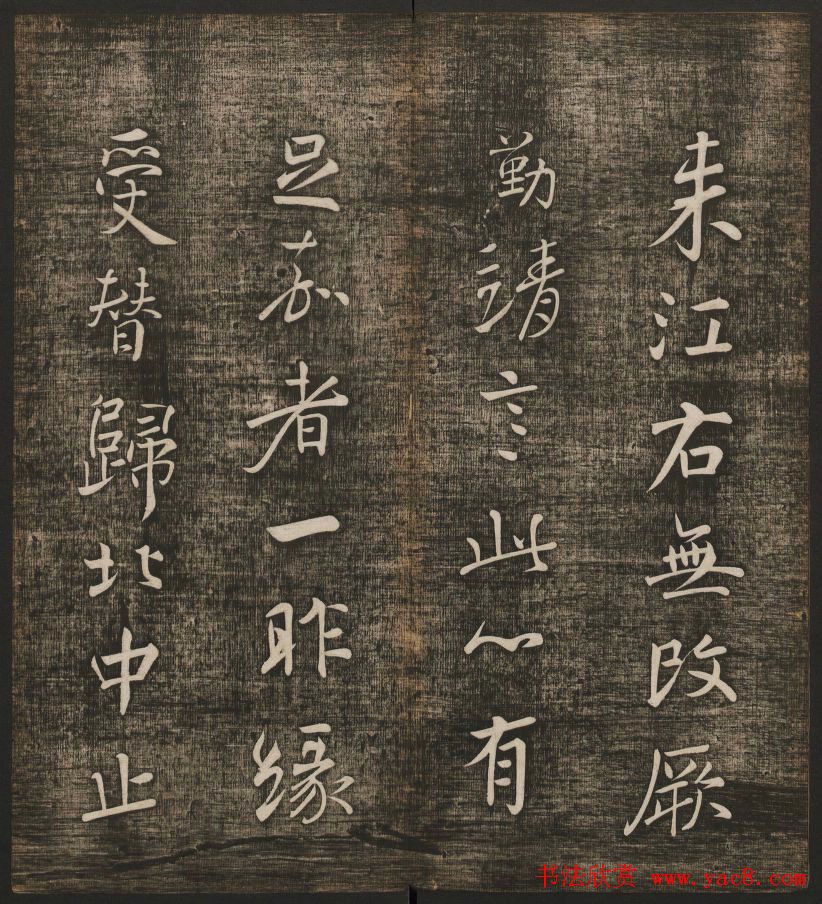 来江右無改厥
勤靖言此心有
足嘉者一昨緣
受替歸北中止
书法欣赏 www.yac8.com